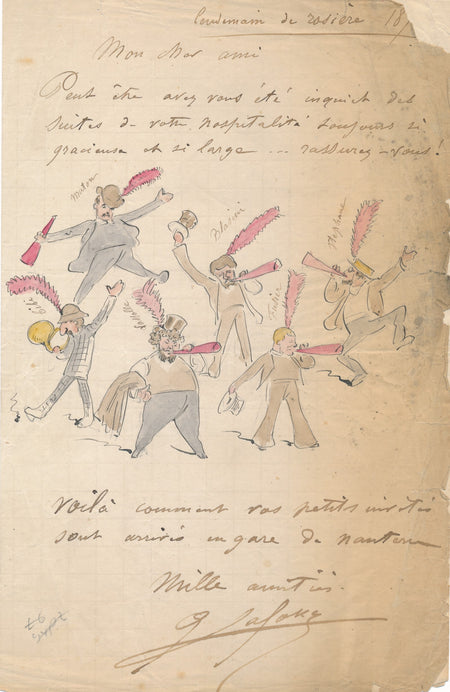 lendemain de rosière 18
Mon cher ami
Peut être avez vous été inquiet des
suites de votre hospitalité toujours si
gracieuse et si large ... rassurez-vous !
Blasini
Stephane
Voilà comment vos petits invités
sont arrivés en gare de nanterre
Mille amitiés.